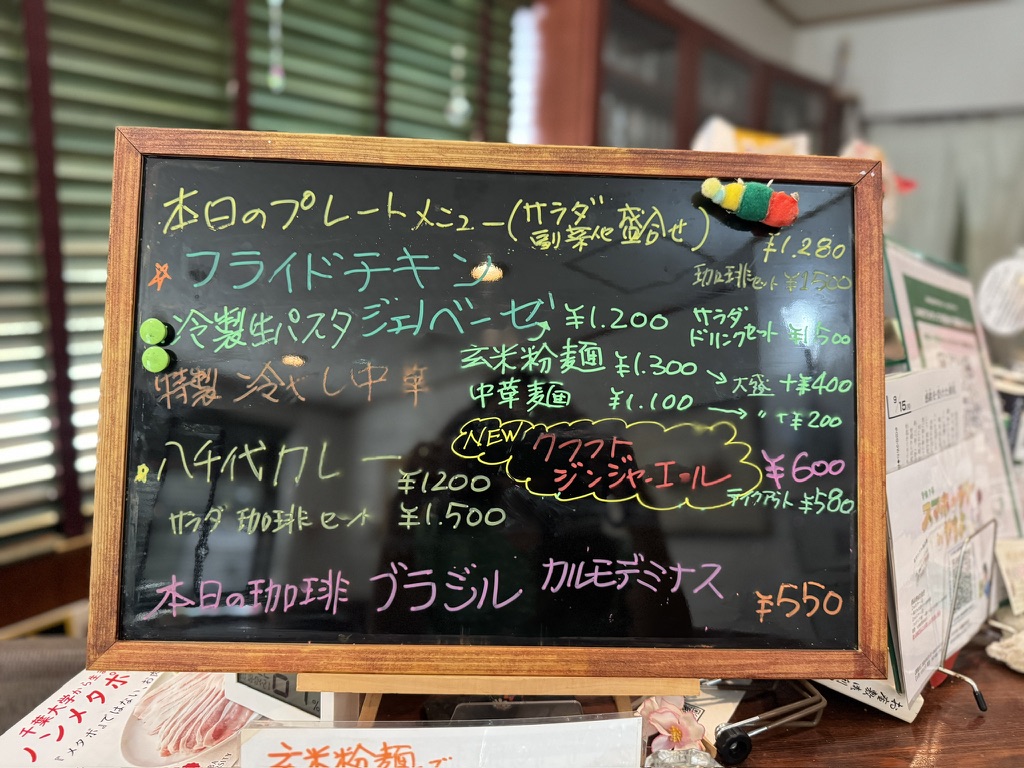 本日のプレートメニュー(サラダ 副菜他 盛合せ)
¥1.280
☆フライドチキン
珈琲セット ¥1500
冷製生パスタ ジェノベーゼ ¥1.200
サラダ
ドリンクセット ¥1500
特製 冷やし中華
玄米粉麺 ¥1.300 → 大盛 +¥400
中華麺 ¥1.100 → 〃 +¥200
八千代カレー ¥1200
サラダ 珈琲セット ¥1.500
NEW クラフト
ジンジャーエール ¥600
テイクアウト ¥580
本日の珈琲 ブラジル カルモデミナス ¥550
千葉大学から生
ハンメタポ
メタボまではない、お肉
玄米粉麺